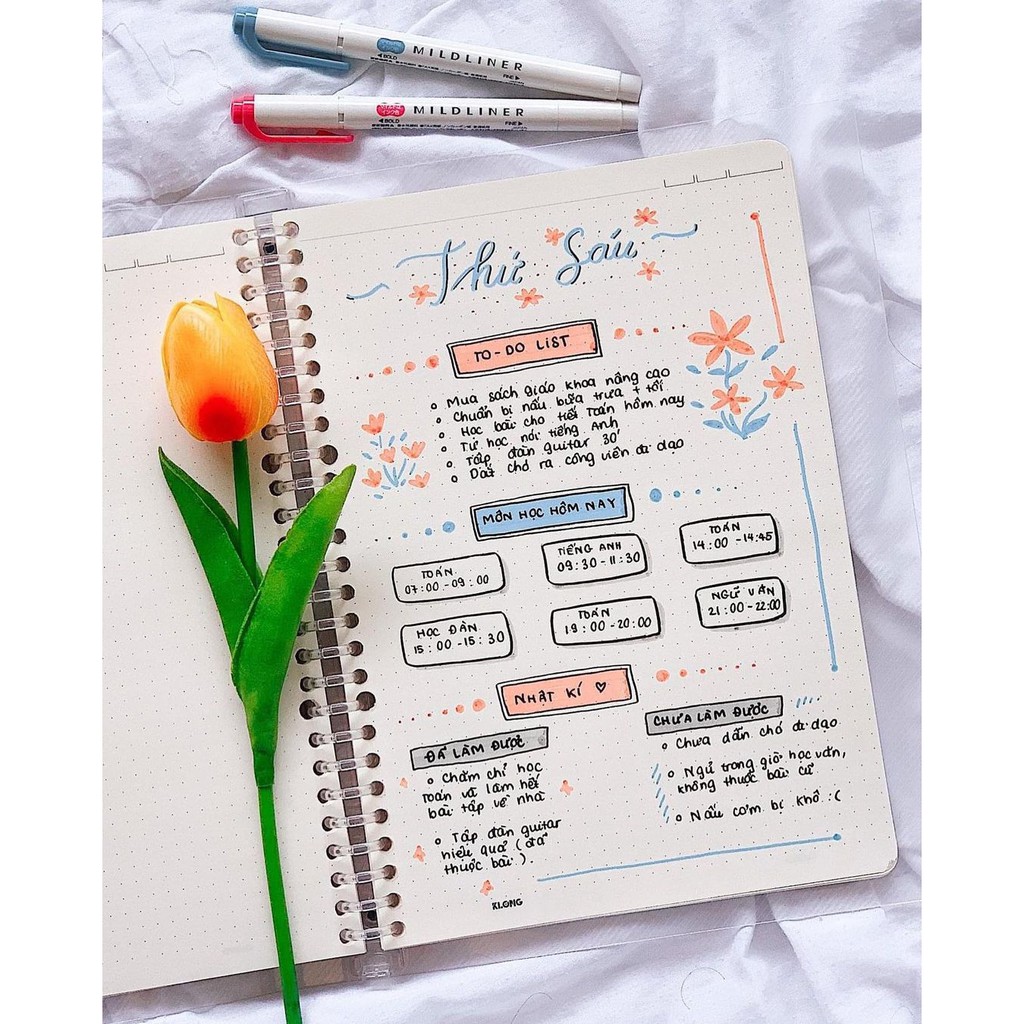 MILDLINER
BOLD
FINE
MILDLINER
BOLD
FINE
Thứ Sáu
TO-DO LIST
Mua sách giáo khoa nâng cao
Chuẩn bị nấu bữa trưa + tối
Học bài cho tiết Toán hôm nay
Tự học nói tiếng Anh
Tập đàn guitar 30'
Dắt chó ra công viên đi dạo
MÔN HỌC HÔM NAY
TOÁN
07:00-09:00
TIẾNG ANH
09:30-11:30
TOÁN
14:00-14:45
HỌC ĐÀN
15:00-15:30
TOÁN
19:00-20:00
NGỮ VĂN
21:00-22:00
NHẬT KÍ ♡
ĐÃ LÀM ĐƯỢC
Chăm chỉ học
Toán và làm hết
bài tập về nhà
Tập đàn guitar
hiệu quả (đã
thuộc bài).
CHƯA LÀM ĐƯỢC
Chưa dẫn chó đi dạo
Ngủ trong giờ học văn,
không thuộc bài cũ
Nấu cơm bị khô :(
KLONG